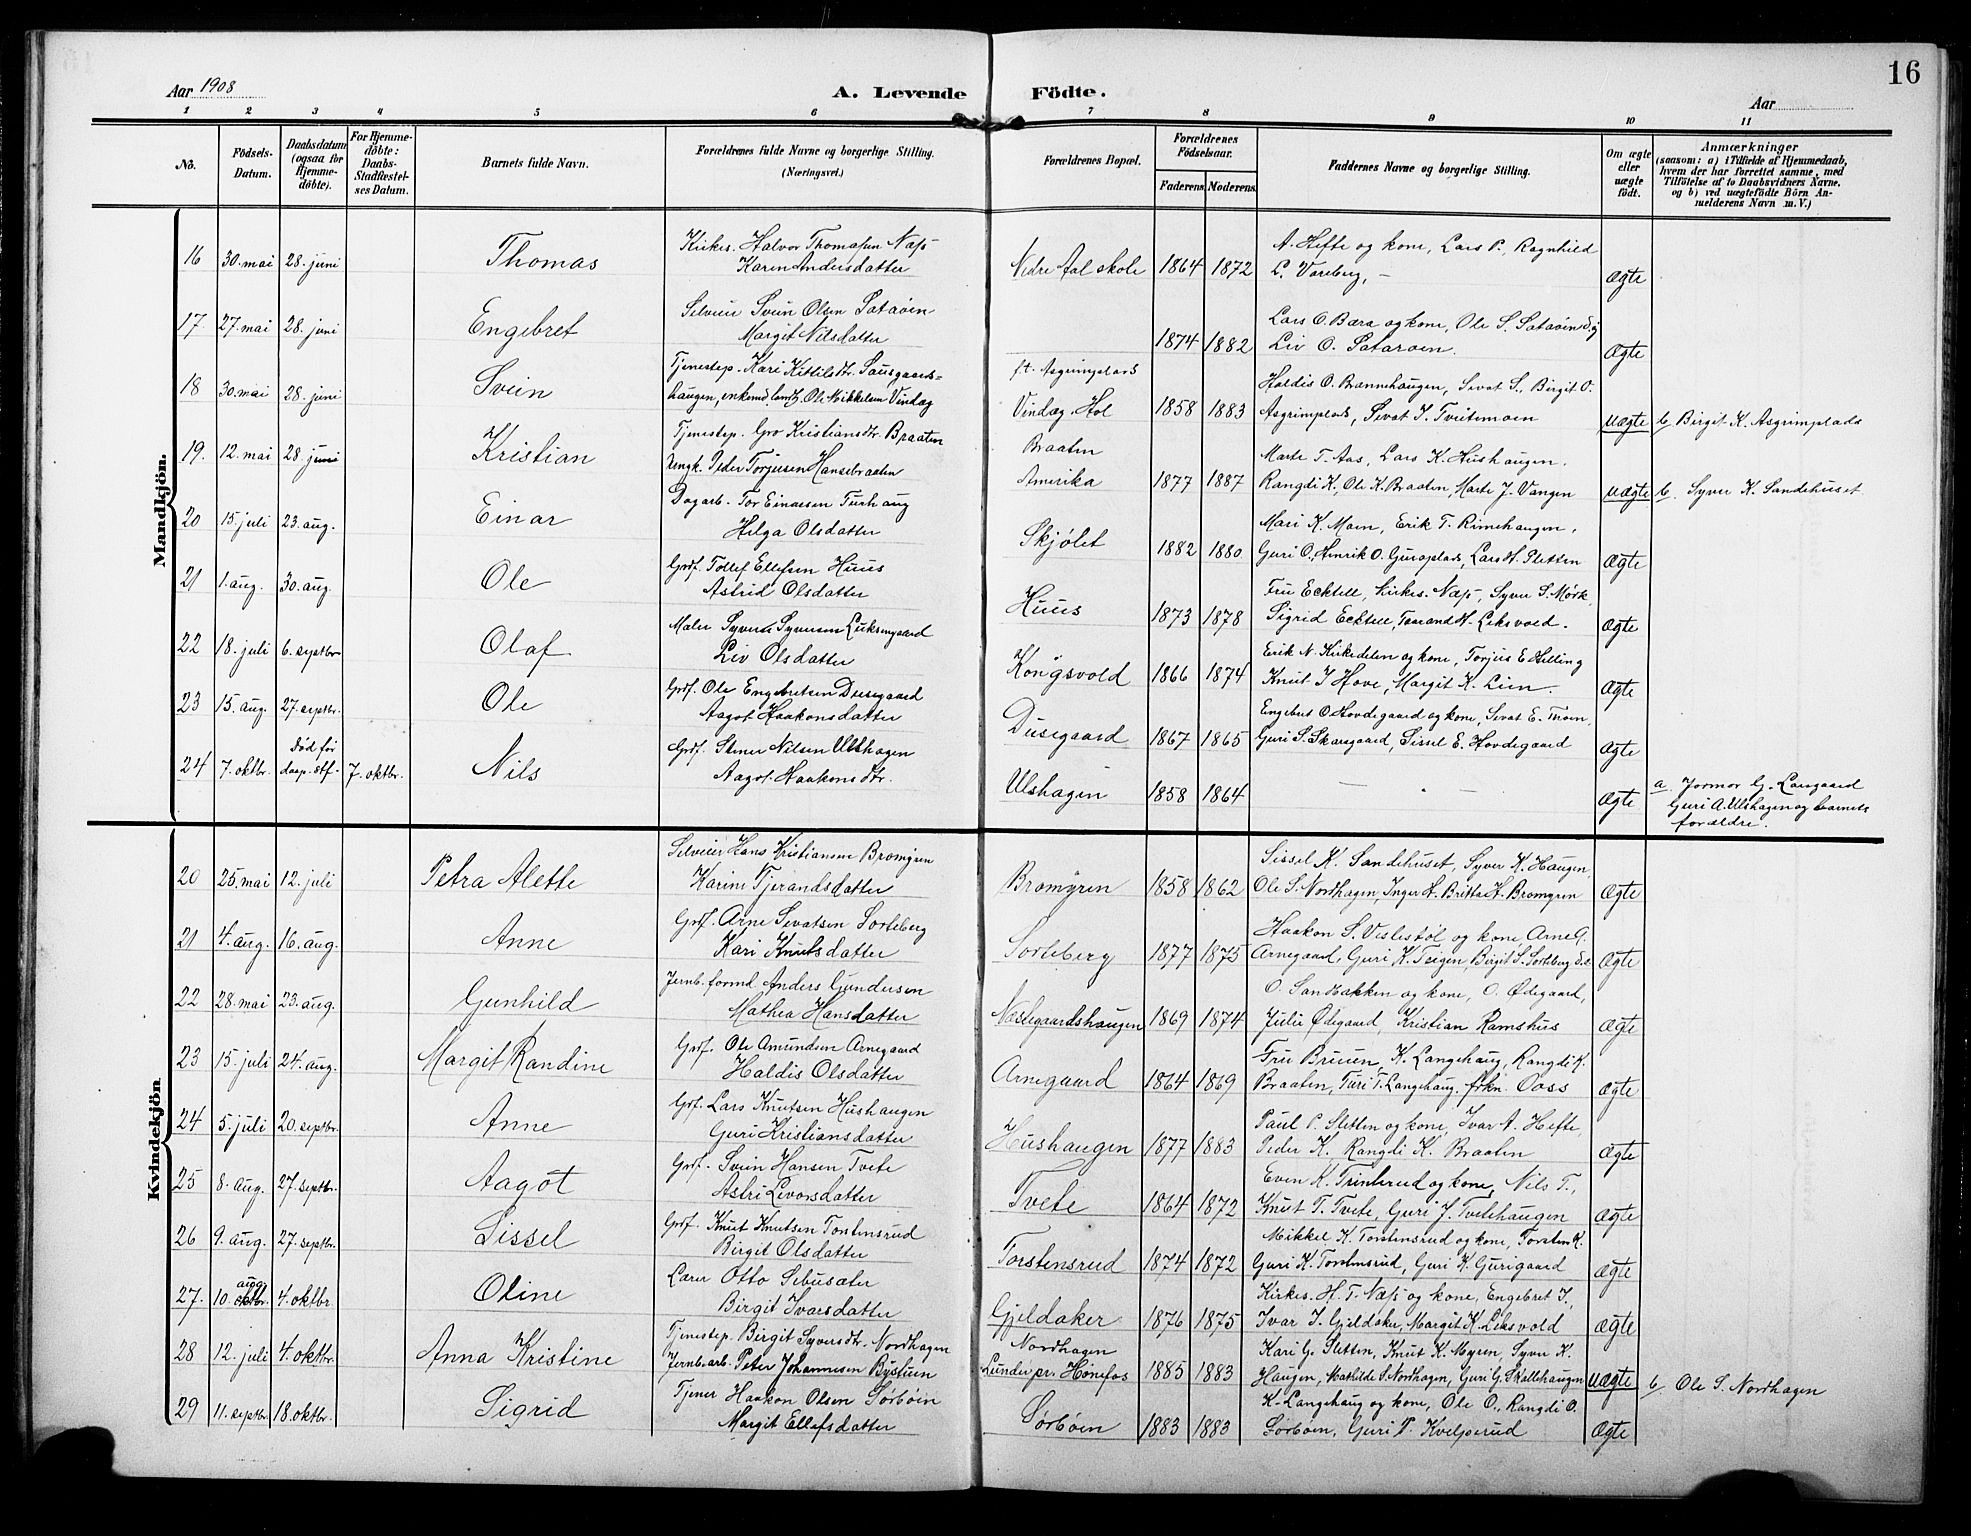 16
Aar 1908
A. Levende Födte.
Aar
1 2 3 4 5 6 7 8 9 10 11
No.
Födsels-Datum.
Daabsdatum (ogsaa for Hjemmedøbte).
For Hjemmedøbte: Daabs-Stadfæstelses Datum.
Barnets fulde Navn.
Forældrenes fulde Navne og borgerlige Stilling. (Næringsvei.)
Forældrenes Bopæl.
Forældrenes Födselsaar.
Faderens Moderens
Faddernes Navne og borgerlige Stilling.
Om ægte eller uægte født.
Anmærkninger
(saasom: a) i Tilfælde af Hjemmedaab, hvem der har forrettet samme, med Tilföielse af to Daabsvidners Navne, og b) ved uægtefödte Börn Anmelderens Navn m. V.)
Mandkjön.
16 30. mai 28. juni Thomas Kirkes. Halvor Thomasen Næss Karen Andersdatter Nedre Aal skole 1864 1872 A. Hefte og kone, Lars P., Ragnhild L. Vareberg, – Ægte
17 27. mai 28. juni Engebret Selveier Svein Olsen Sataøen Margit Nilsdatter 1874 1882 Lars O. Bæra og kone, Ole S. Sataøen Liv O. Ægte
18 30. mai 28. juni Svein Tjenestep. Kari Kittilsdtr. haugen, Ole Mikkelsen Vindæg ft. Asgrimplads Vindæg Hol 1858 1883 Haldis O. Brennehaugen, Sevat S., Birgit O. Asgrimplads, Sevat T. Tveitemoen uægte b. Birgit K. Asgrimplads
19. 12. mai 28 juni Kristian Tjenestep. Gro Kristiansdtr. Braaten Ungk. Peder Torjusen Hansebraaten Braaten Amerika 1877 1887 Marte T. Aas, Lars K. Hushaugen. Rangdi K, Ole K. Braaten, Marte J. Vangen uægte b. Syver K. Sandehuset
20 15. juli 23. aug. Einar Dagarb. Tor Einarsen Turhaug Helga Olsdatter Skjølet 1882 1880 Mari K. Moen, Erik T. Rimehaugen, Guri O., Henrik O. Guroplads, Lars H. Sletten Ægte
21 1. aug. 30. aug. Ole Grdf. Tollef Ellefsen Huus Astrid Olsdatter Huus 1873 1878 Fru Ecktell, Kirkes. Næss, Syver S. Mørk, Sigrid Ecktell, Leksvold. Ægte
22 18. juli 6. septbr Olaf Maler Syver Syversen Luksengaard Liv Olsdatter Kongsvold 1866 1874 Erik N. Kirkedelen og kone, Torjus E. Helling Knut I Hove, Margit K. Lien. Ægte
23 15. aug. 27. septbr. Ole Grdf. Ole Engebretsen Dusegaard Aagot Haakonsdatter Dusegaard 1867 1865 Engebret O. Hovdegaard og kone, Sevat E. Guri S. Skarsgaard, Sissel E. Hovdegaard Ægte
24 7. oktbr. død før daap. stf. 7. oktbr. Nils Grdf. Steinar Nilsen Ulshagen Aagot Haakonsdtr. Ulshagen 1858 1864 – – Ægte a. G. Guri A. Ulshagen og barnets forældre.
Kvindekjön.
20 25. mai 12. juli Petra Alette Selveier Hans Kristiansen Bromyren Karine Tjerandsdatter Bromyren 1858 1862 Sissel K. Sandehuset, Syver K. Haugen, Ole S. Nordhagen, Inger H. Britta H. Bromyren Ægte
21 4. aug. 16. aug. Anne Grdf. Arne Sevatsen Sorteberg Kari Knutsdatter Sorteberg 1877 1875 Haakon S. Veslestøl og kone, Arne G. Arnegaard, Guri K. Teigen, Birgit S. Sorteberg Ægte
22 28. mai 23. aug. Gunhild Jernb. formd. Anders Gundersen Mathea Hansdatter Næstegaardshaugen 1869 1874 O. Sandbakken og kone, O. Ødegaard, Julie Ødegaard, Kristian Ramshus Ægte
23 15. juli 24. aug. Margit Randine Grdf. Ole Amundsen Arnegaard Haldis Olsdatter Arnegaard 1864 1869 Fru Bruun, K. Langehaug, Rangdi K. Braaten, Turi T. Langehaug. frkn. Voss Ægte
24 5. juli 20. septbr. Anne Grdf. Lars Knutsen Hushaugen Guri Kristiansdatter Hushaugen 1877 1883 Paul P. Sletten og kone, Ivar A. Hefte, Peder K. Rangdi K. Braaten Ægte
25 8. aug. 27. septbr. Aagot Grdf. Svein Hansen Tvete Astri Levorsdatter Tvete 1864 1872 Even K. Trinterud og kone, Nils T., Knut T. Tvete, Guri J. Tvetehaugen Ægte
26 9. aug. 27. septbr. Sissel Grdf. Knut Knutsen Torstensrud Birgit Olsdatter Torstensrud 1874 1872 Mikkel K. Torstensrud og kone, Torsten K. Guri K. Torstensrud, Guri K. Gurigaard Ægte
27. 10. aug. oktbr. 4. oktbr. Oline Lærer Otto Sebusæter Birgit Ivarsdatter Gjeldaker 1876 1875 Kirkes. H. T. Næss og kone, Engebret I., Ivar I. Gjeldaker, Margit K. Leksvold Ægte
28 12. juli 4. oktbr. Anna Kristine Tjenestep. Birgit Syversdtr. Nordhagen Jernb.arb. Peter Johannesen Bystuen Nordhagen Lunder pr. Hønefos 1885 1883 Kari G. Sletten, Knut K. Myren, Syver K. Haugen, Mathilde S. Nordhagen, Guri G. Skallehaugen uægte b. Ole S. Nordhagen
29 11. septbr. 18. oktbr. Sigrid Tjener Haakon Olsen Sørbøen Margit Ellefsdatter Sørbøen 1883 1883 K. Langehaug og kone, Ole O., Rangdi O. Sørbøen, Guri P. Kvelperud Ægte